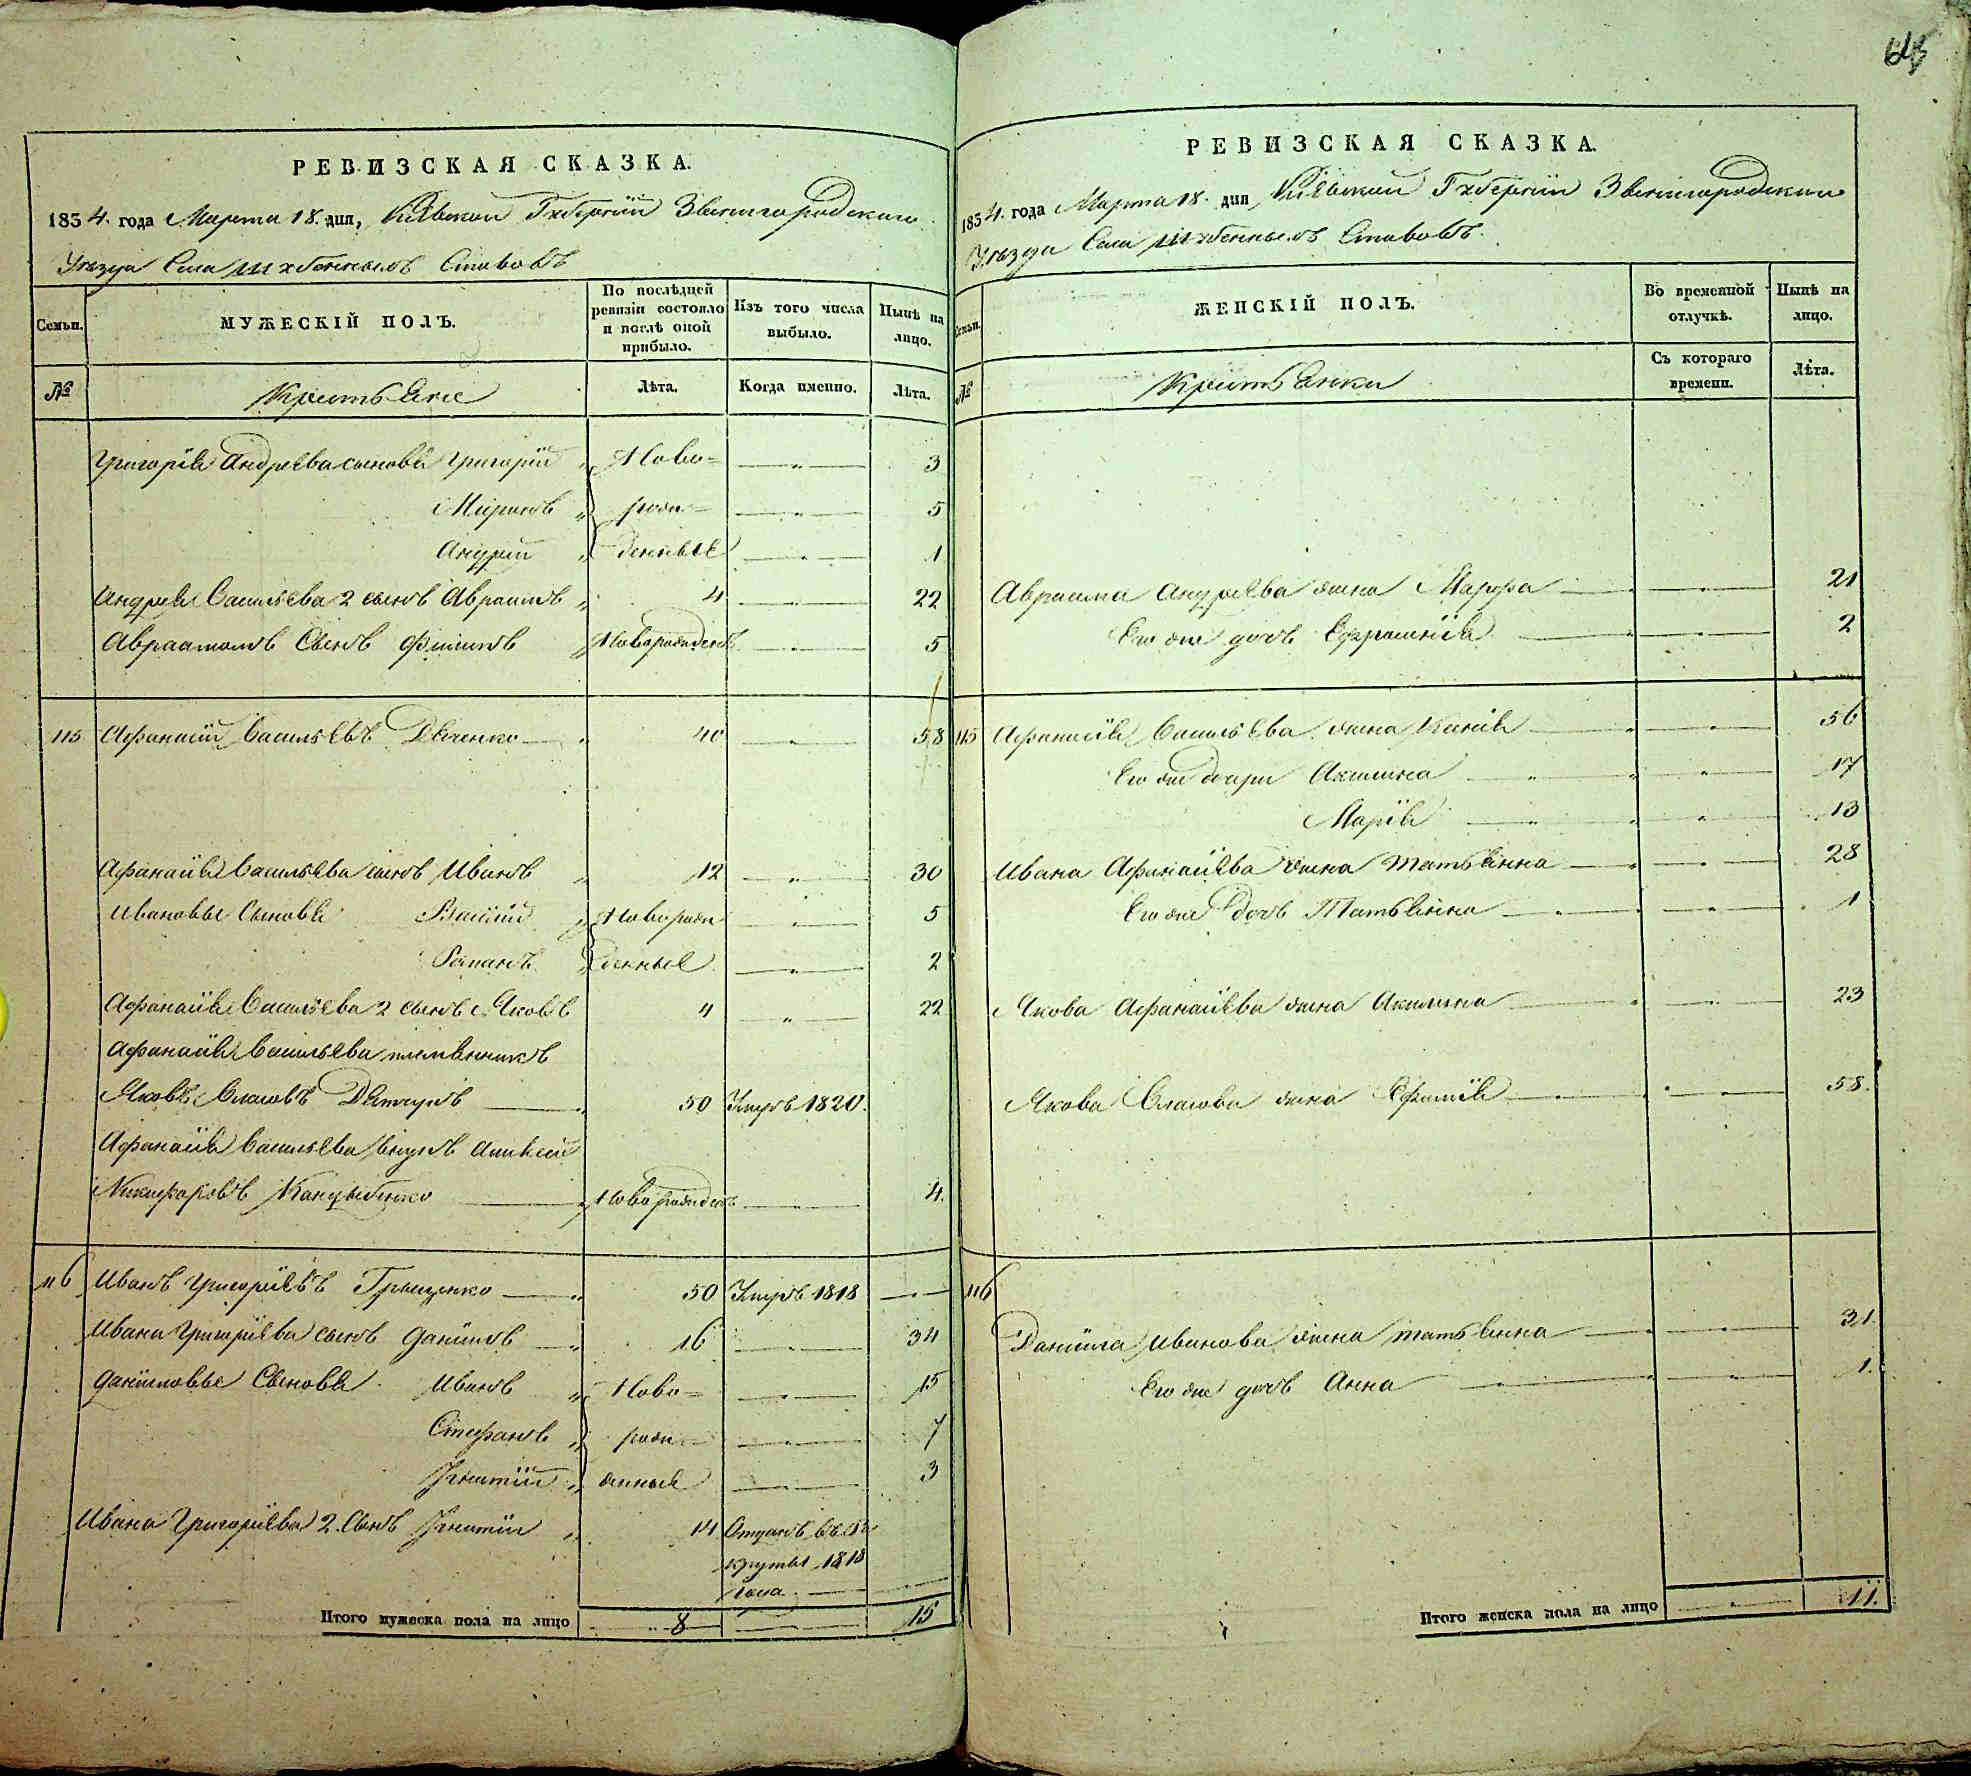 РЕВИЗСКАЯ СКАЗКА.
1834. года Марта 18. дня, Кіевской Губерніи Звенигородскаго
Уѣзда Села Шубенныхъ Ставовъ
Семьи.
МУЖЕСКІЙ ПОЛЪ.
По послѣдней ревизіи состояло и послѣ оной прибыло.
Изъ того числа выбыло.
Нынѣ на лицо.
№
Крестьяне
Лѣта.
Когда именно.
Лѣта.
Григорія Андреева сыновья Григорій Ново= 3
Миронъ рож= 5
Андрей денные 1
Андрея Васильева 2 сынъ Авраамъ 4 22
Авраамовъ Сынъ Филипъ Новорожденъ 5
115 Афанасій Васильевъ Дяченко 40 58
Афанасія Васильева сынъ Иванъ 12 30
Ивановы Сыновья Новорож 5
Романъ денные 2
Афанасія Васильева 2 сынъ Яковъ 4 22
Афанасія Васильева племянникъ
Яковъ Власовъ 50 Умеръ 1820.
Афанасія Васильева внукъ Алексей
Никифоровъ Новорожденъ 4.
116 Иванъ Григоріевъ Грыценко 50 Умеръ 1818
Ивана Григоріева сынъ Даніилъ 16 34
Даніиловы Сыновья Иванъ Ново= 15
Стефанъ рож= 7
Игнатій денные 3
Ивана Григоріева 2. Сынъ Игнатій 14 Отданъ въ ре
круты 1818
года
Итого мужеска пола на лицо 8 15
РЕВИЗСКАЯ СКАЗКА.
1834. года Марта 18. дня Кіевской Губерніи Звенигородскаго
Уѣзда Села Шубенныхъ Ставовъ.
Семьи.
ЖЕНСКІЙ ПОЛЪ.
Во временной отлучкѣ.
Нынѣ на лицо.
№
Крестьянки
Съ котораго времени.
Лѣта.
Авраама Андреева жена Марфа 21
Его же дочь Ефросинія 2
115 Афанасія Васильева жена Ксенія 56
Его же дочери Акилина 17
Марія 13
Ивана Афанасіева жена Татьянна 28
Его же дочь Татьянна 1
Якова Афанасіева жена Акилина 23
Якова Власова жена Ефимія 58.
116
Даніила Иванова жена Татьянна 31.
Его же дочь Анна 1.
Итого женска пола на лицо 11.